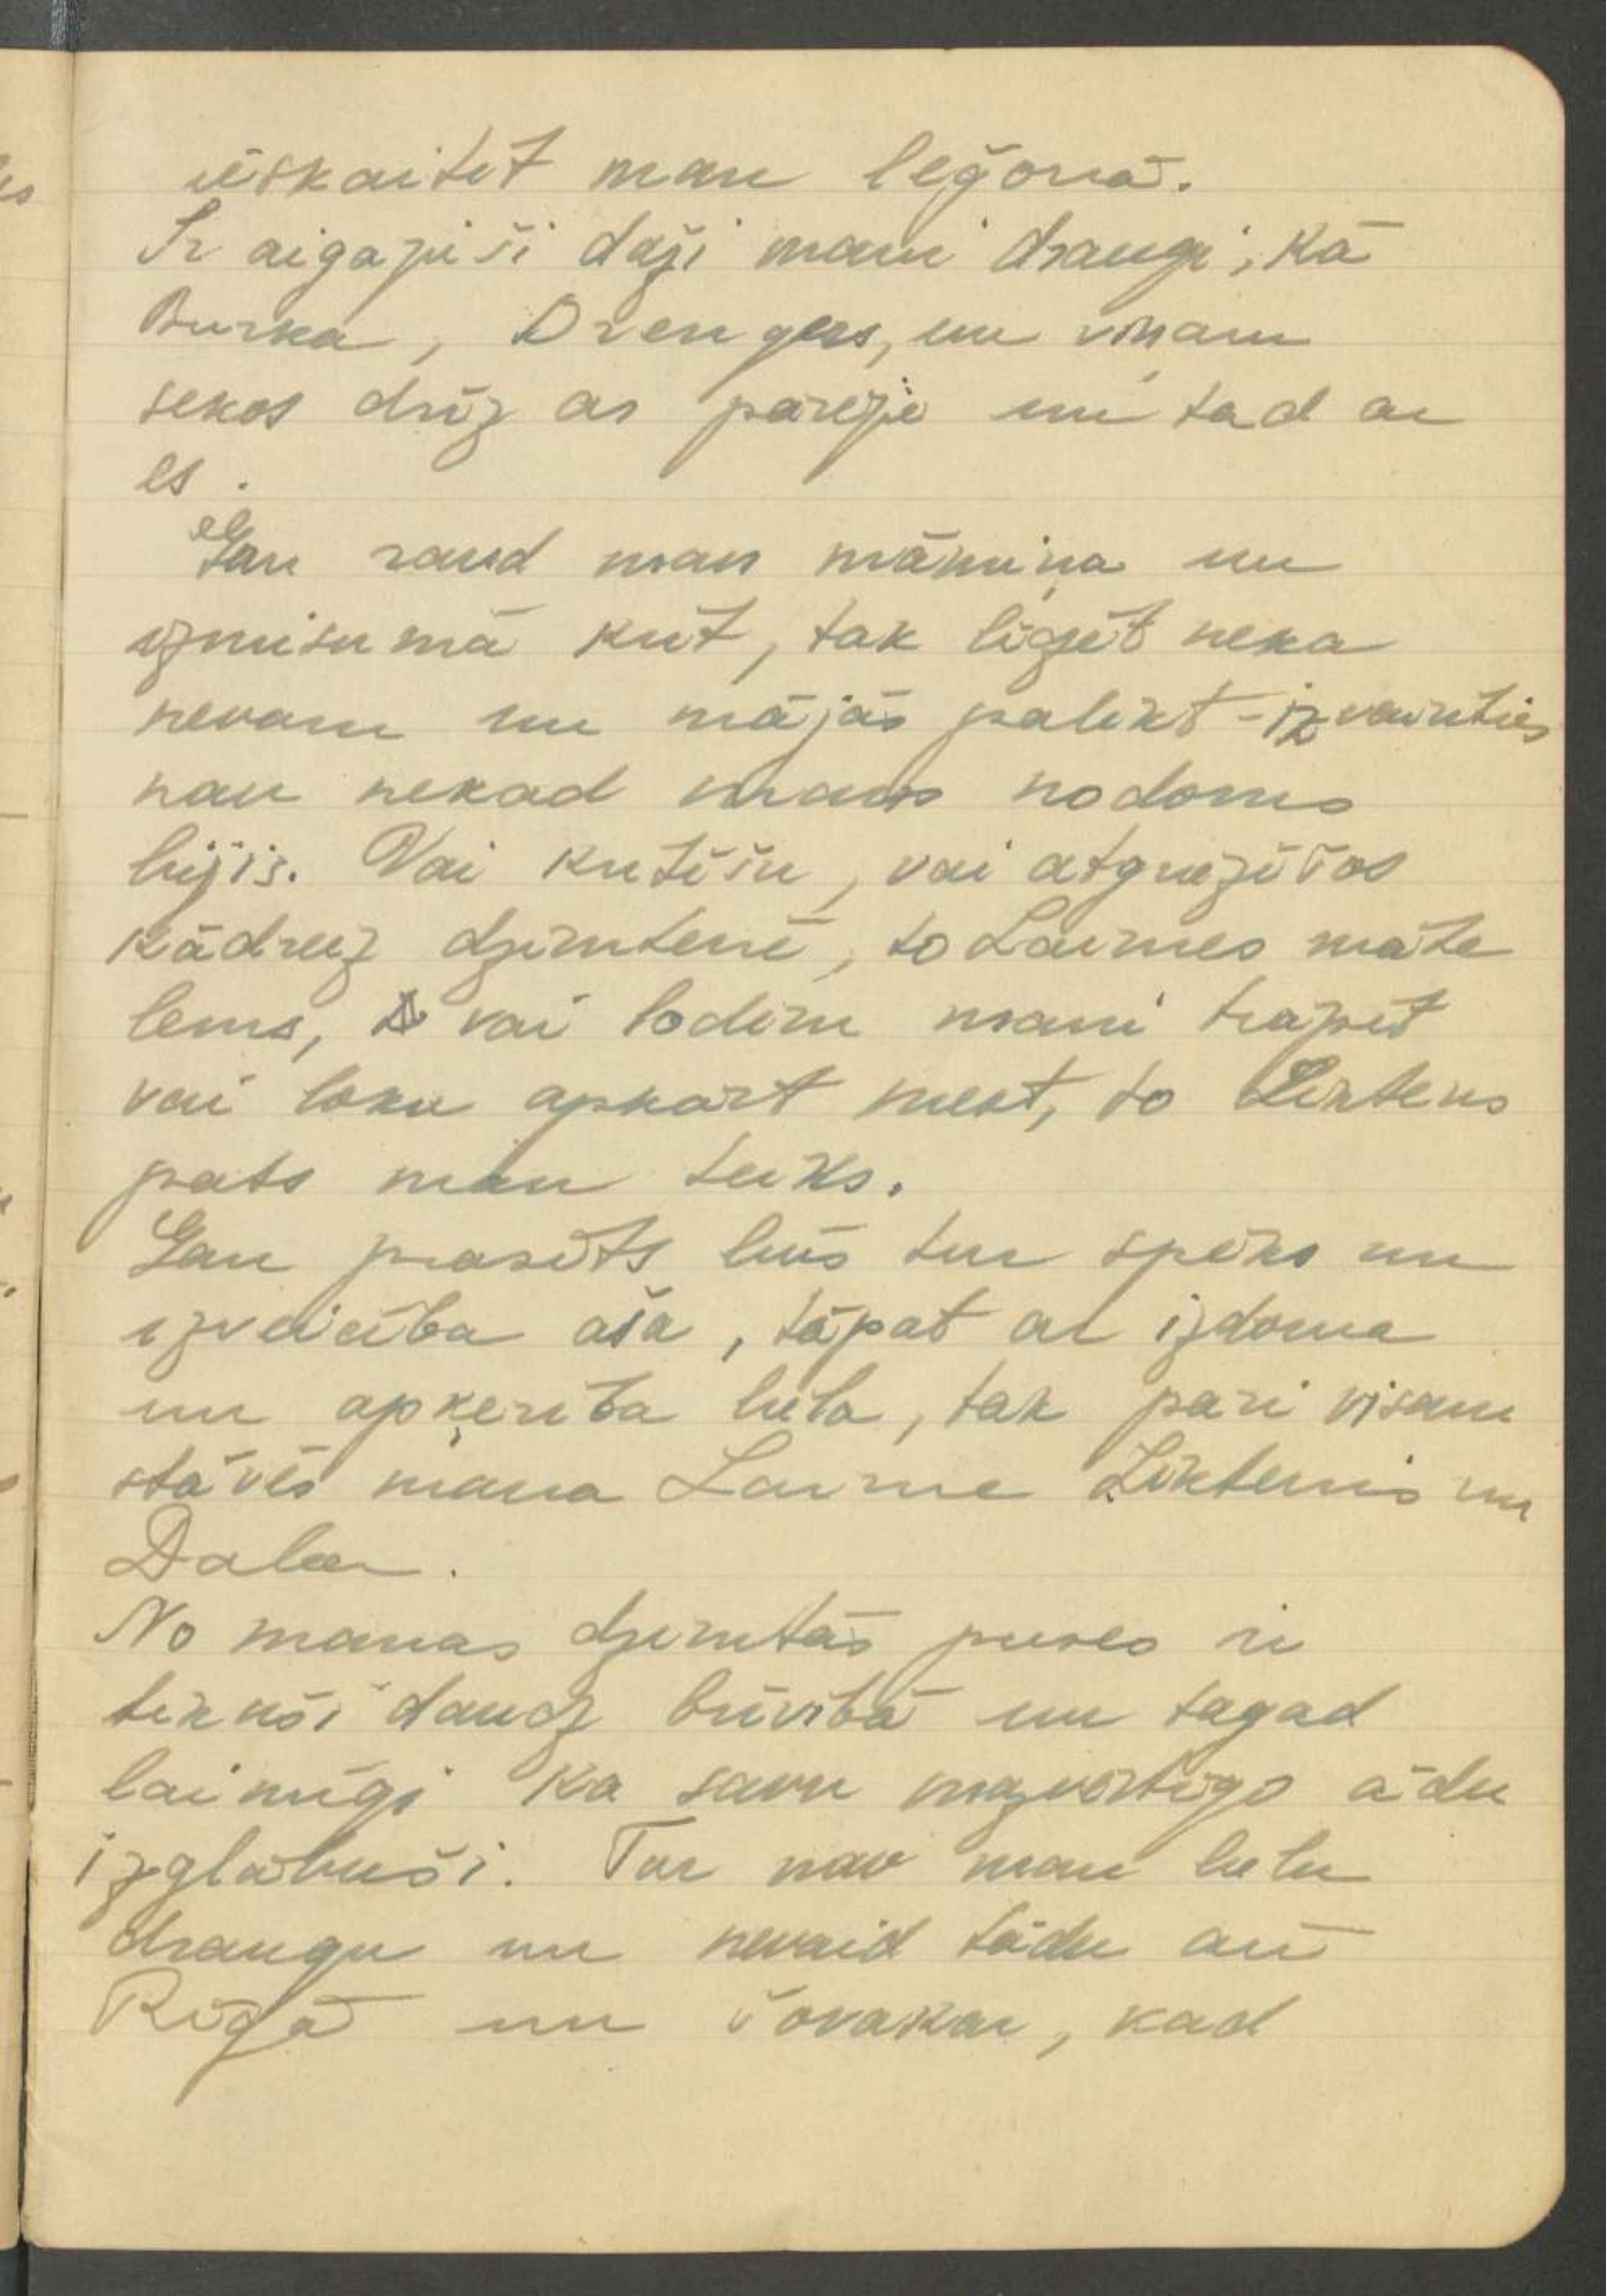 ieskaitīt man leģonā.
Ir aizgājuši daži mani draugi, kā
Burka, Drengers, un viņam
sekos drīz ar parējie un tad ar
es.
Gan raud man māmiņa un
izmisumā krīt, tak līdzēt neka
nevaru un mājās palikt - izvairīties
nau nekad mans nodoms
bijis. Vai kritīšu, vai atgriezīšos
kādreiz dzimtenē, to Laimes māte
lems, vai lodēm mani trāpīt
vai loku apkārt mest, to Liktens
pats man teiks.
Gan prasīts būs tur spēks un
izveicība aša, tāpat ar izdoma
un apķerība liela, tak pāri visam
stāvēs mana Laime Liktenis un
Daļa.
No manas dzimtās puses ir
tikuši daudz brīvībā un tagad
laimīgi ka savu mazvērtīgo ādu
izglābuši. Tur nav man lielu
draugu un nevaid tādu arī
Rīgā un šovakar, kad